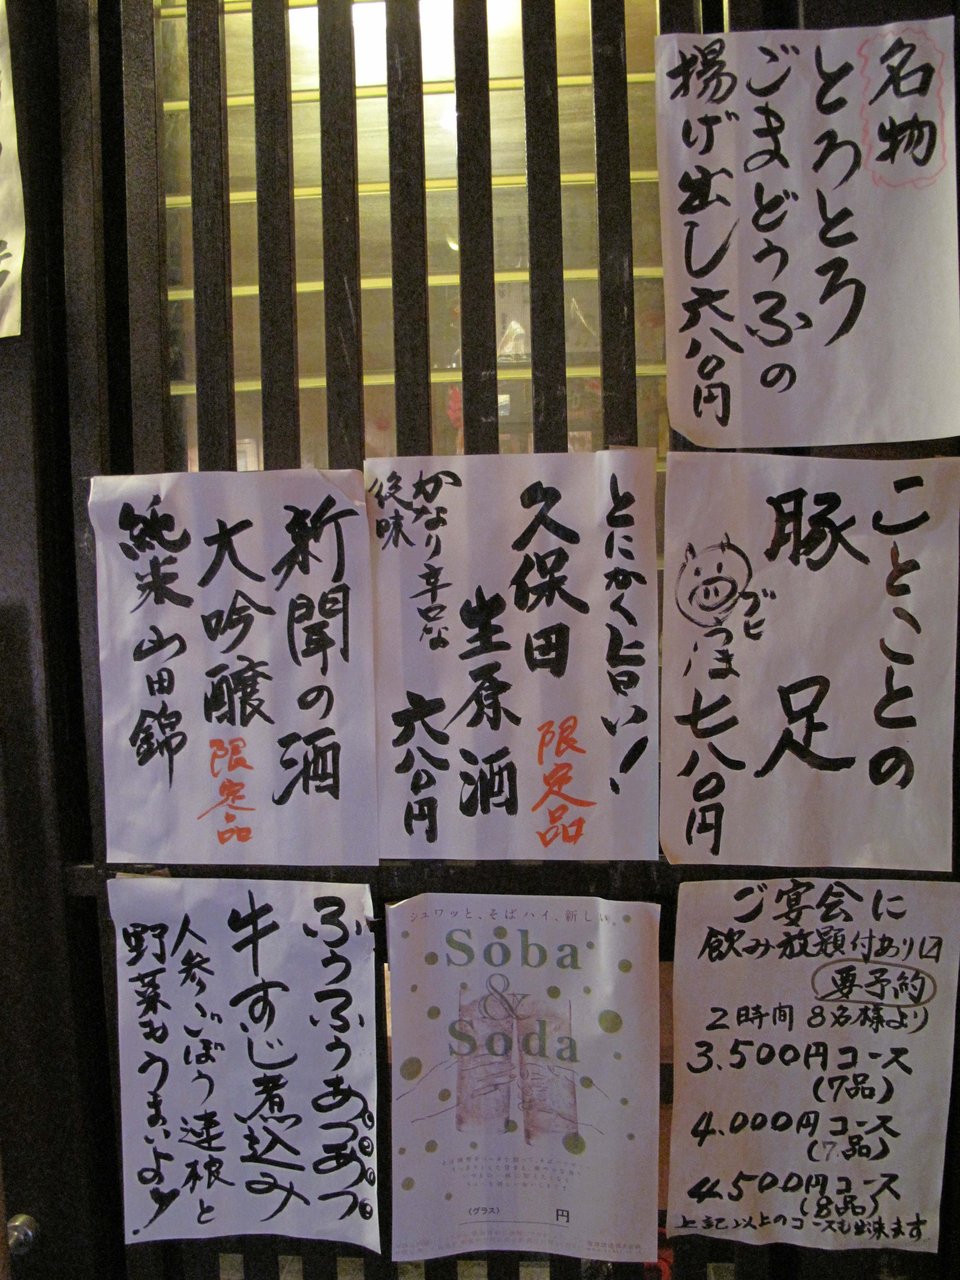 名物
とろとろ
ごまどうふの
揚げ出し六八〇円
ことことの
豚足
ブヒ
つま七八〇円
とにかく旨い！
久保田
生原酒
限定品
かなり辛口な
後味
六八〇円
新聞の酒
大吟醸
限定品
純米山田錦
ご宴会に
飲み放題付あり〼
要予約
2時間 8名様より
3.500円コース
(7品)
4.000円コース
(7品)
4.500円コース
(8品)
上記以上のコースも出来ます
シュワッと、そばハイ、新しい。
Soba
&
Soda
(グラス) 円
ふぅふぅあつあつ。
牛すじ煮込み
人参ごぼう連根と
野菜もうまいよ